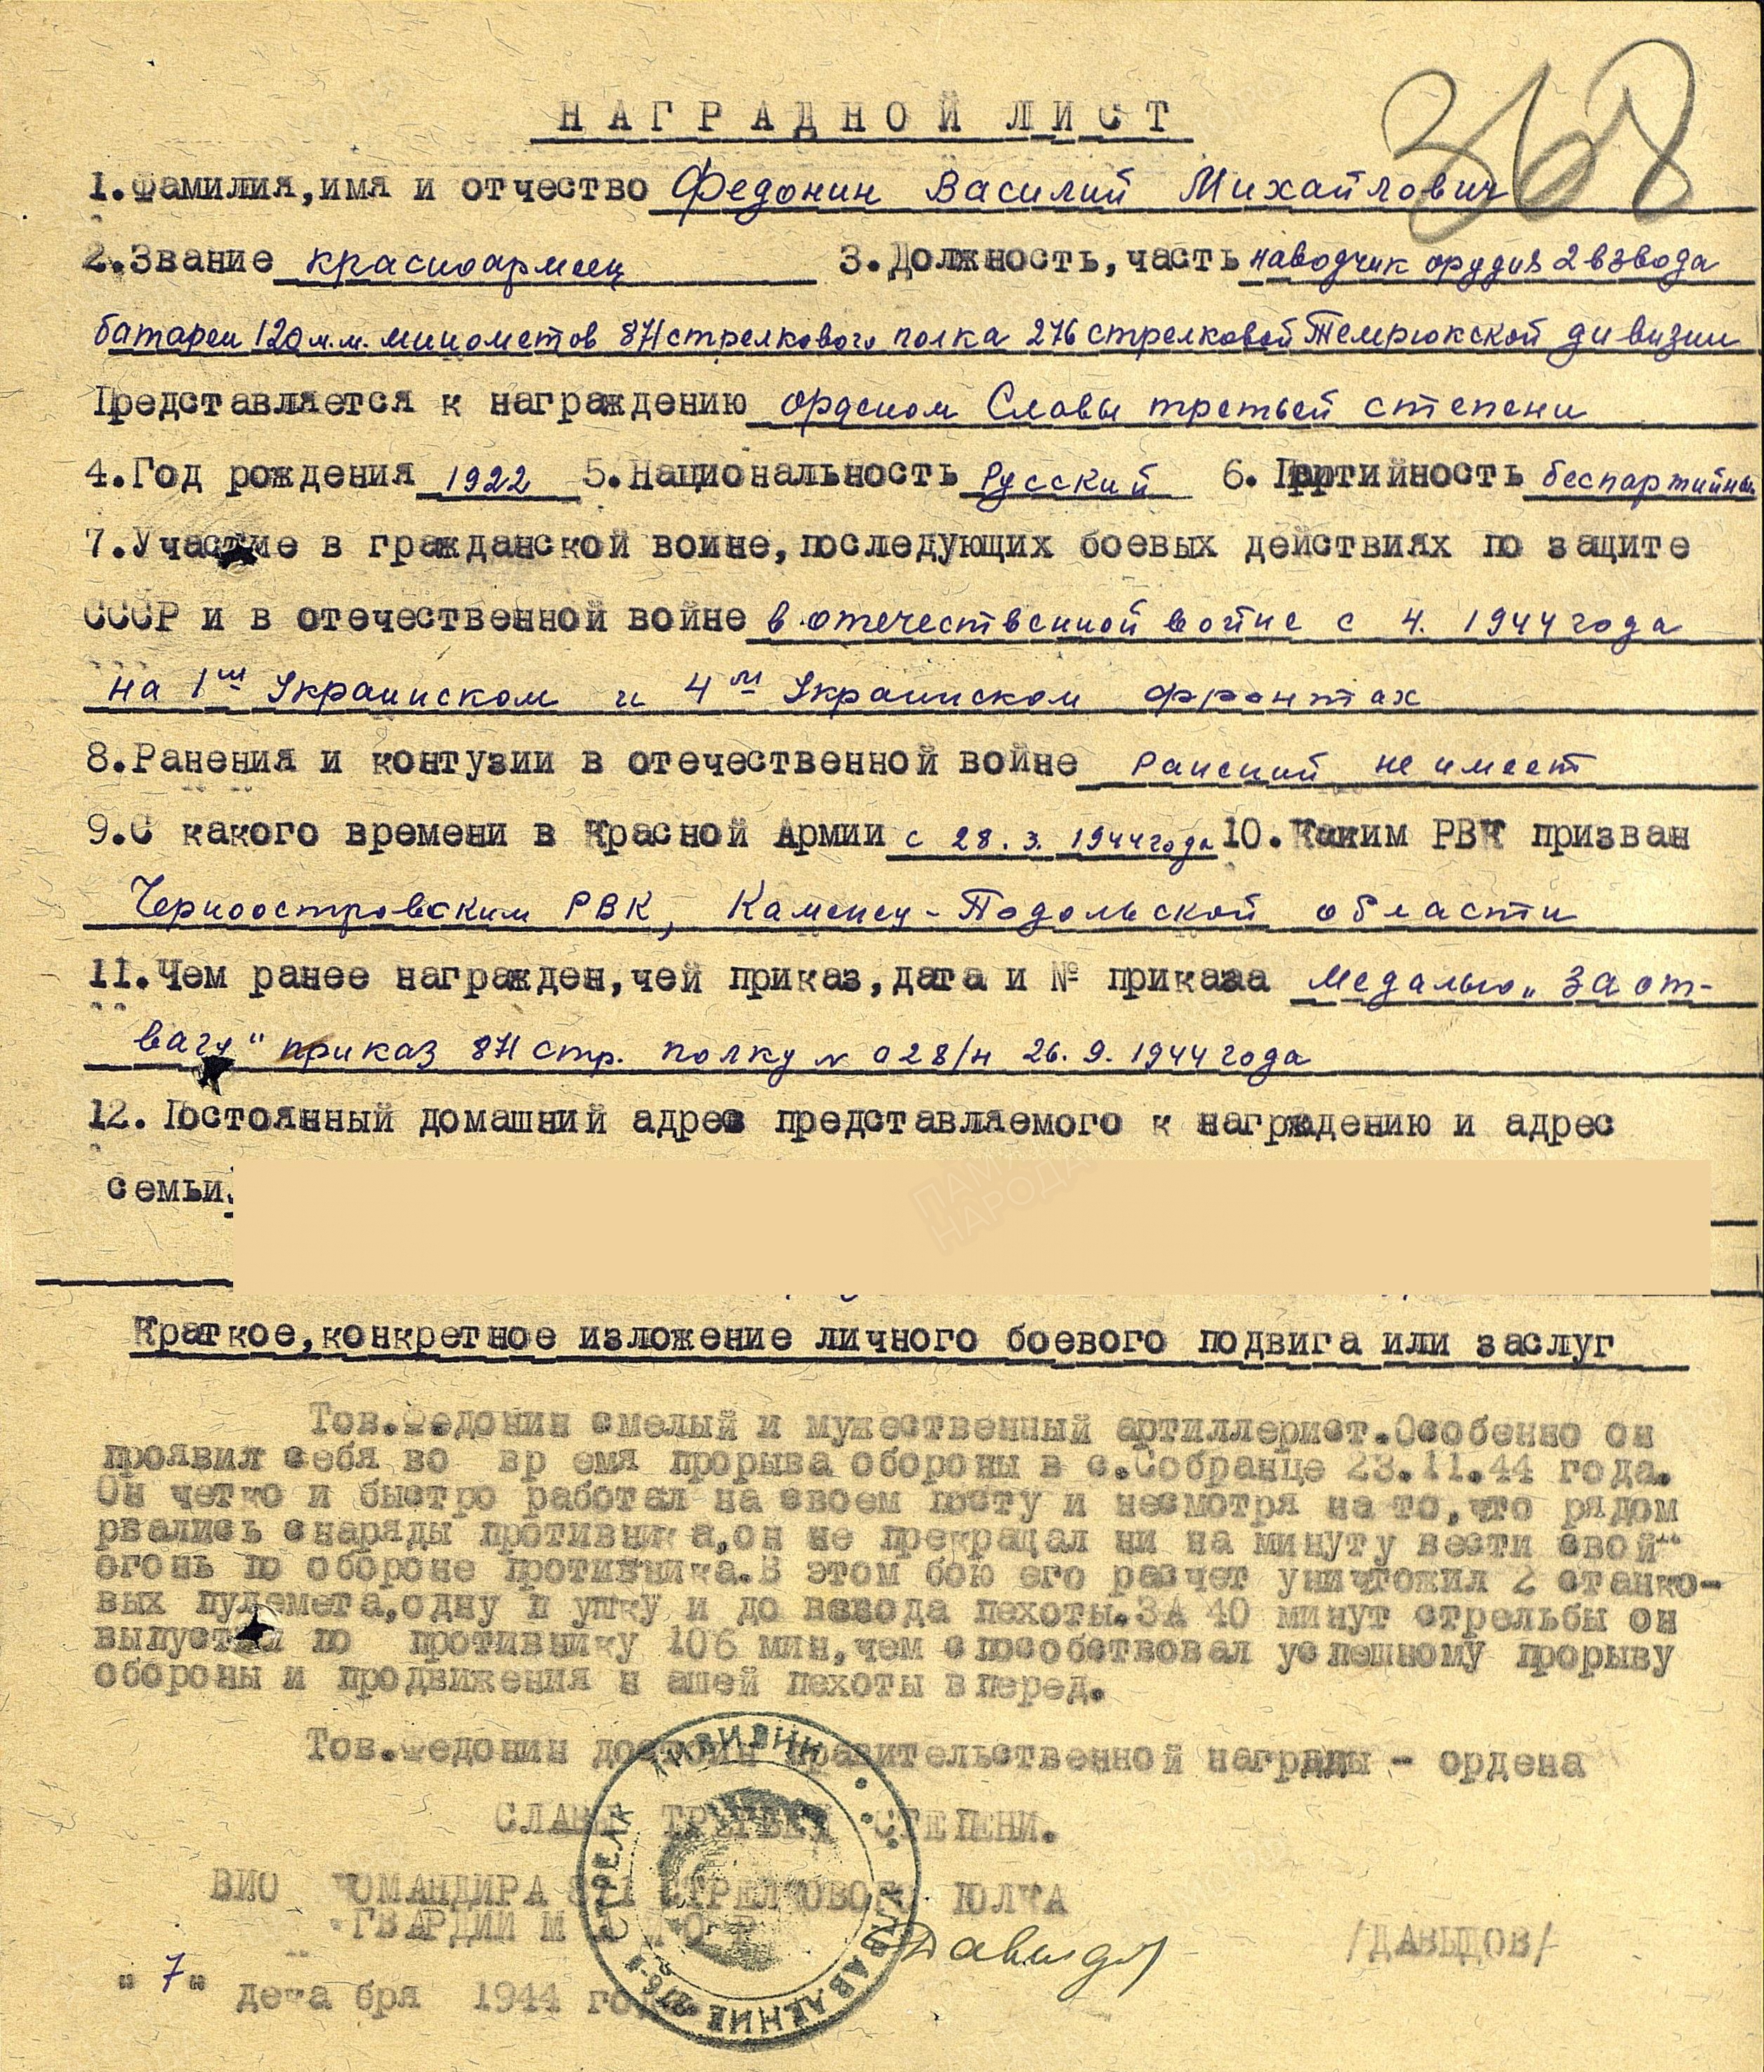 368
НАГРАДНОЙ ЛИСТ
1.Фамилия,имя и отчество Федонин Василий Михайлович
2.Звание красноармеец 3.Должность,часть наводчик орудия 2 взвода
батареи 120 м.м. минометов 871 стрелкового полка 276 стрелковой Темрюкской дивизии
Представляется к награждению орденом Славы третьей степени
4.Год рождения 1922 5.Национальность Русский 6.Партийность беспартийный
7.Участие в гражданской воине,последующих боевых действиях по защите
СССР и в отечественной войне в отечественной войне с 4. 1944 года
на 1м Украинском и 4м Украинском фронтах
8.Ранения и контузии в отечественной войне ранений не имеет
9.С какого времени в Красной Армии с 28.3.1944 года 10.Каким РВК призван
Черноостровским РВК, Каменец-Подольской области
11.Чем ранее награжден,чей приказ,дата и № приказа медалью „За от-
вагу" приказ 871 стр. полку № 028/н 26.9.1944 года
12.Постоянный домашний адрес представляемого к награждению и адрес
семьи.
ПАМЯТЬ
НАРОДА
Краткое,конкретное изложение личного боевого подвига или заслуг
Тов.Федонин смелый и мужественный артиллерист.Особенно он
проявил себя во вр емя прорыва обороны в с.Собранце 23.11.44 года.
Он четко и быстро работал на своем посту и несмотря на то,что рядом
рвались снаряды противника,он не прекращал ни на минуту вести свой
огонь по обороне противника.В этом бою его расчет уничтожил 2 станко-
вых пулемета,одну п ушку и до взвода пехоты.ЗА 40 минут стрельбы он
выпустил по противнику 106 мин,чем способствовал успешному прорыву
обороны и продвижения н ашей пехоты вперед.
Тов.Федонин достоин правительственной награды - ордена
СЛАВЫ ТРЕТЬЕЙ СТЕПЕНИ.
ВИО КОМАНДИРА 871 СТРЕЛКОВОГО ПОЛКА
ГВАРДИИ М А Й О Р
Давыдов /ДАВЫДОВ/
"7" дека бря 1944 го
УПРАВЛЕНИЕ 276-й СТРЕЛК ДИВИЗИИ